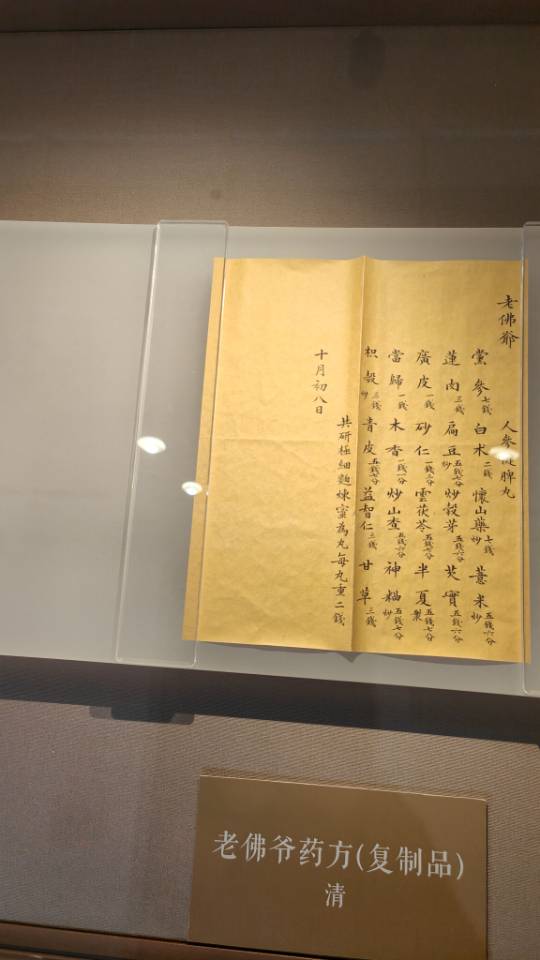 老佛爺
人參健脾丸
黨參七錢 白术二錢 懷山藥炒七錢 薏米炒五錢六分
蓮肉三錢 扁豆炒五錢七分 炒穀芽五錢六分 芡實五錢六分
廣皮一錢 砂仁一錢三分 雲茯苓五錢七分 半夏製五錢七分
當歸一錢 木香一錢一分 炒山查五錢六分 神糆炒五錢七分
枳殼炒三錢 青皮五錢七分 益智仁三錢 甘草三錢
共研極細麵煉蜜為丸每丸重二錢
十月初八日
老佛爷药方(复制品)
清